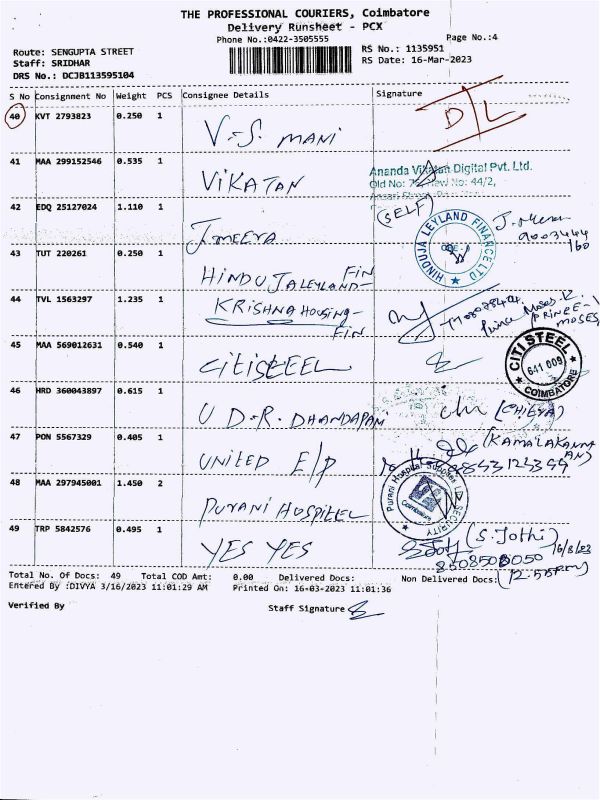 THE PROFESSIONAL COURIERS, Coimbatore
Delivery Runsheet - PCX
Phone No.:0422-3505555
Page No.:4
Route: SENGUPTA STREET
RS No.: 1135951
Staff: SRIDHAR
RS Date: 16-Mar-2023
DRS No.: DCJB113595104
S No Consignment No Weight PCS Consignee Details Signature
40 KVT 2793823 0.250 1 V.S. MANI D/L
41 MAA 299152546 0.535 1 VIKATAN
Ananda Vikatan Digital Pvt. Ltd.
Old No: New No: 44/2,
42 EDQ 25127024 1.110 1 J.MEERA (SELF)
HINDUJA LEYLAND FINANCE LTD
43 TUT 220261 0.250 1 HINDUJALEYLAND FIN
44 TVL 1563297 1.235 1 KRISHNA HOUSING-FIN
PRINCE
MOSES
45 MAA 569012631 0.540 1 CITISTEEL
CITI STEEL
641 009
COIMBATORE
46 HRD 360043897 0.615 1 U D.R. DHANDAPANI
47 PON 5567329 0.405 1 UNITED E/P (KAMALAKANNAN)
48 MAA 297945001 1.450 2 PURANI HOSPITEL
Purani Hospital Supplies
SECURITY
Coimbatore
49 TRP 5842576 0.495 1 YES YES (S.Jothi)
16/3/23
8508508050
(12.55PM)
Total No. Of Docs: 49 Total COD Amt: 0.00 Delivered Docs: Non Delivered Docs:
Entered By :DIVYA 3/16/2023 11:01:29 AM Printed On: 16-03-2023 11:01:36
Verified By Staff Signature